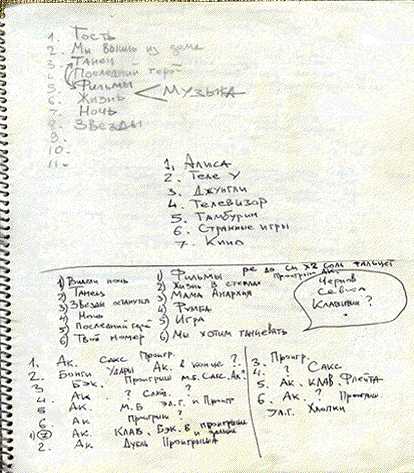 1. Гость
2. Мы вышли из дома
3. Танец
4. Последний герой
5. Фильмы
6. Жизнь
7. Ночь
8. Звезды
9.
10.
11.
Музыка
1. Алиса
2. Теле У
3. Джунгли
4. Телевизор
5. Тамбурин
6. Странные игры
7. Кино
1) Видели ночь
2) Танец
3) Звезды останутся
4) Ночь
5) Последний герой
6) Твой номер
1) Фильмы
2) Жизнь в стеклах
3) Мама Анархия
4) Румба
5) Игра
6) Мы хотим танцевать
ре до си х2 соль фальцет
проигрыш Ак.
Чернов
Севкин
Клавиши ?
1. Ак. Сакс Проигр.
2. Бонги Удары Ак. в конце ?
3. Бэк. Проигрыш м.б. Сакс. Ак.
4. Ак. ? Соло. ?
5. Ак. М.Б Эл.Г. и Проигр
6 Ак Проигрыш ?
1) 7 Ак. Клав. Бэк. в проигрыше
2. Ак Дубль Проигрыша
3. Проигр.
4. ? Сакс
5. Ак. Клав. Флейта
6. Ак. ? Проигрыш
Эл.Г. Хлопки